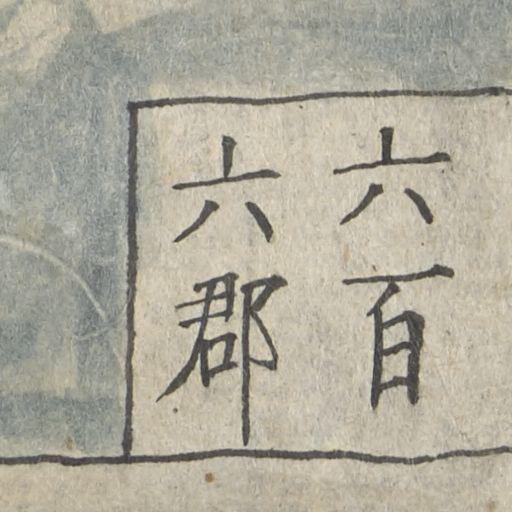 六百
六郡